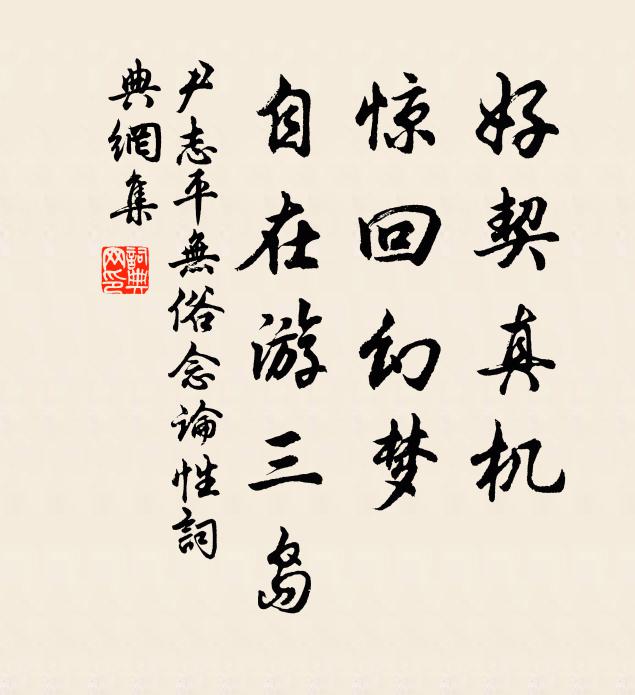 好契真机
惊回幻梦
自在游三岛
尹志平無俗念论性詞
典網集
詞典
网印